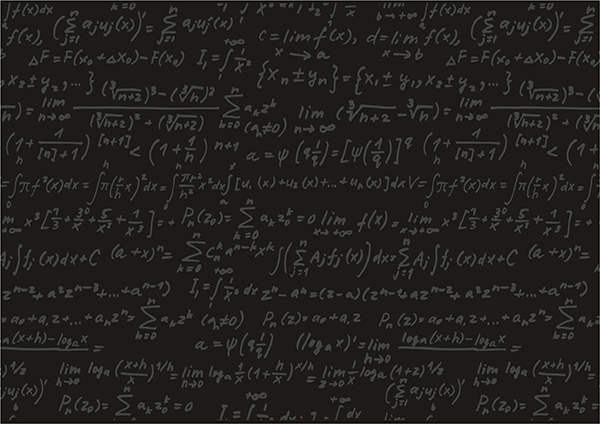 ∫f(x)dx k=0 lim f(x)dx
f(x), (∑_{j=1}^{n} a_j u_j(x))' = ∑_{j=1}^{n} a_j u_j'(x) c = lim_{x→a} f(x), d = lim_{x→b} f(x), (∑_{j=1}^{n} a_j u_j(x))' = ∑_{j=1}^{n} a_j u_j'(x)
ΔF = F(x₀+Δx₀) - F(x₀) I₁ = ∫^{+∞} 1/x² ΔF = F(x₀+Δx₀) - F(x₀)
x_n ± y_2, ...} {x_n ± y_n} = {x_1 ± y_1, x_2 ± y_2, ...}
) = lim_{n→∞} (∛(n+2))³ - (∛n)³ / (∛(n+2))² + (∛(n+2)) ∑_{k=0}^{n} a_k z^k (a_n≠0) lim_{n→∞} (∛(n+2) - ∛n) = lim_{n→∞} (∛(n+2))³ - (∛n)³ / (∛(n+2))² + (∛(n+2))
(1 + 1/([n]+1))^{[n+1]} < (1 + 1/n)^{n+1} a = ψ(q 1/q) = [ψ(1/q)]^q (1 + 1/([n]+1))^{[n+1]} < (1 +
= ∫πf²(x)dx = ∫π(r/h x)²dx = ∫πr²/h² x²dx ∫[u_1(x)+u_2(x)+...+u_n(x)]dx V = ∫πf²(x)dx = ∫π(r/h x)²dx = ∫
lim_{x→∞} x³[7/3 + 30/x + 5/x² + 1/x³] = + P_n(z₀) = ∑_{k=0}^{n} a_k z₀^k = 0 lim_{x→+∞} f(x) = lim_{x→+∞} x³[7/3 + 30/x + 5/x² + 1/x³] = +
A_j∫f_j(x)dx + C (a+x)^n = ∑_{k=0}^{n} C_n^k a^{n-k} x^k ∫(∑_{j=1}^{n} A_j f_j(x))dx = ∑_{j=1}^{n} A_j∫f_j(x)dx + C (a+x)^n =
z^{n-2} + a²z^{n-3} + ... + a^{n-1}) I₁ = ∫^{+∞} 1/x² dx z^n - a^n = (z-a)(z^{n-1} + az^{n-2} + a²z^{n-3} + ... + a^{n-1})
= a₀ + a₁z + ... + a_n z^n = ∑_{k=0}^{n} a_k z^k (a_n≠0) P_n(z) = a₀ + a₁z P_n(z) = a₀ + a₁z + ... + a_n z^n = ∑_{k=0}^{n} a_k z^k
log_a(x+h) - log_a x = a = ψ(q 1/q) (log_a x)' = lim_{h→0} log_a(x+h) - log_a x =
lim_{h→0} log_a((x+h)/x)^{1/h} = lim_{h→0} log_a 1/x (1 + h/x)^{x/h} = lim_{z→0} log_a(1+z)^{1/z} lim_{h→0} log_a((x+h)/x)^{1/h}
a_j u_j(x))' P_n(z₀) = ∑_{k=0}^{n} a_k z₀^k = 0 I = ∫^{+∞} dx ∫dx (∑_{j=1}^{n} a_j u_j(x))' P_n(z₀) = ∑_{k=0}^{n} a_k z₀^k = 0